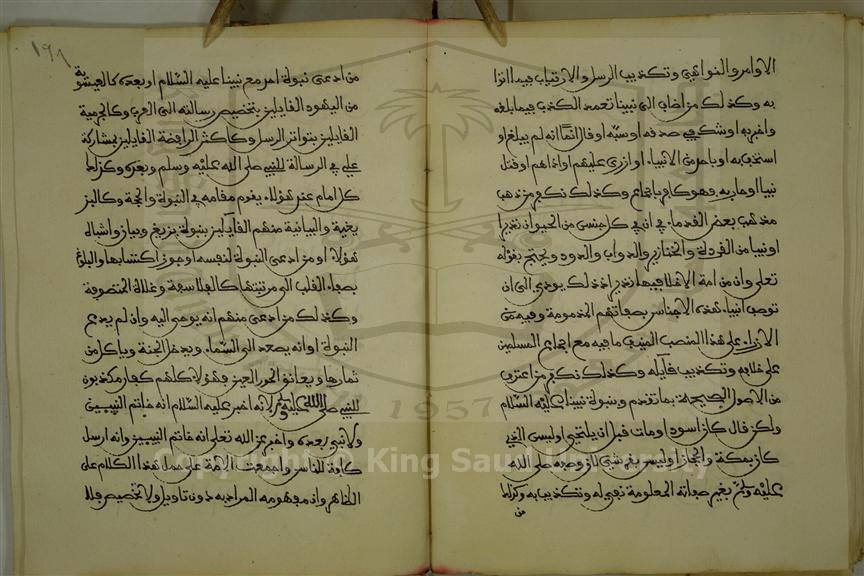 الاوامر والنواهي وتكذيب الرسل والارتياب فيما اتوا
به وكذلك من اضاف الى نبينا تعمد الكذب فيما بلغه
واخبر به او شك في صدقه او سبه او قال انه لم يبلغ او
استخف به او باحد من الانبيا. او ازرى عليهم او اذاهم او قتل
نبيا او حاربه فهو كافر باجماع وكذلك نكفر من ذهب
مذهب بعض القدما. في ان في كل جنس من الحيوان نذيرا
او نبيا من القردة والخنازير والدواب والدود ويحتج بقوله
تعلى وان من امة الا خلا فيها نذير اذ ذلك يودي الى ان
توصف انبيا. هذه الاجناس بصفاتهم المذمومة وفيه من
الازرا. على هذا المنصب المنيف ما فيه مع اجماع المسلمين
على خلافه وتكذيب قايله وكذلك نكفر من اعترف
من الاصول الصحيحة بما تقدم ونبوة نبينا عليه السلام
ولكن قال كان اسود او مات قبل ان يلتحي او ليس الذي
كان بمكة والحجاز او ليس بقرشي لان وصفه صلى الله
عليه وسلم بغير صفاته المعلومة نفي له وتكذيب به وكذلك
من
١٩٨
من ادعى نبوة احد مع نبينا عليه السلام او بعده كالعيسوية
من اليهود القايلين بتخصيص رسالته الى العرب وكالخرمية
القايلين بتواتر الرسل وكاكثر الرافضة القايلين بمشاركة
علي في الرسالة للنبي صلى الله عليه وسلم وبعده وكذلك
كل امام عند هؤلا. يقوم مقامه في النبوة والحجة وكالبز
يغية والبيانية منهم القايلين بنبوة بزيغ وبيان واشباه
هؤلا. او من ادعى النبوة لنفسه او جوز اكتسابها والبلوغ
بصفا. القلب الى مرتبتها كالفلاسفة وغلاة المتصوفة
وكذلك من ادعى منهم انه يوحى اليه وان لم يدع
النبوة او انه يصعد الى السما. ويدخل الجنة وياكل من
ثمارها ويعانق الحور العين فهؤلا. كلهم كفار مكذبون
للنبي صلى الله عليه وسلم لانه اخبر عليه السلام انه خاتم النبيين
ولا نبي بعده واخبر عن الله تعلى انه خاتم النبيين وانه ارسل
كافة للناس واجمعت الامة على حمل هذا الكلام على
الظاهر وان مفهومه المراد به دون تاويل ولا تخصيص فلا
Copyright © King Saud University
1957